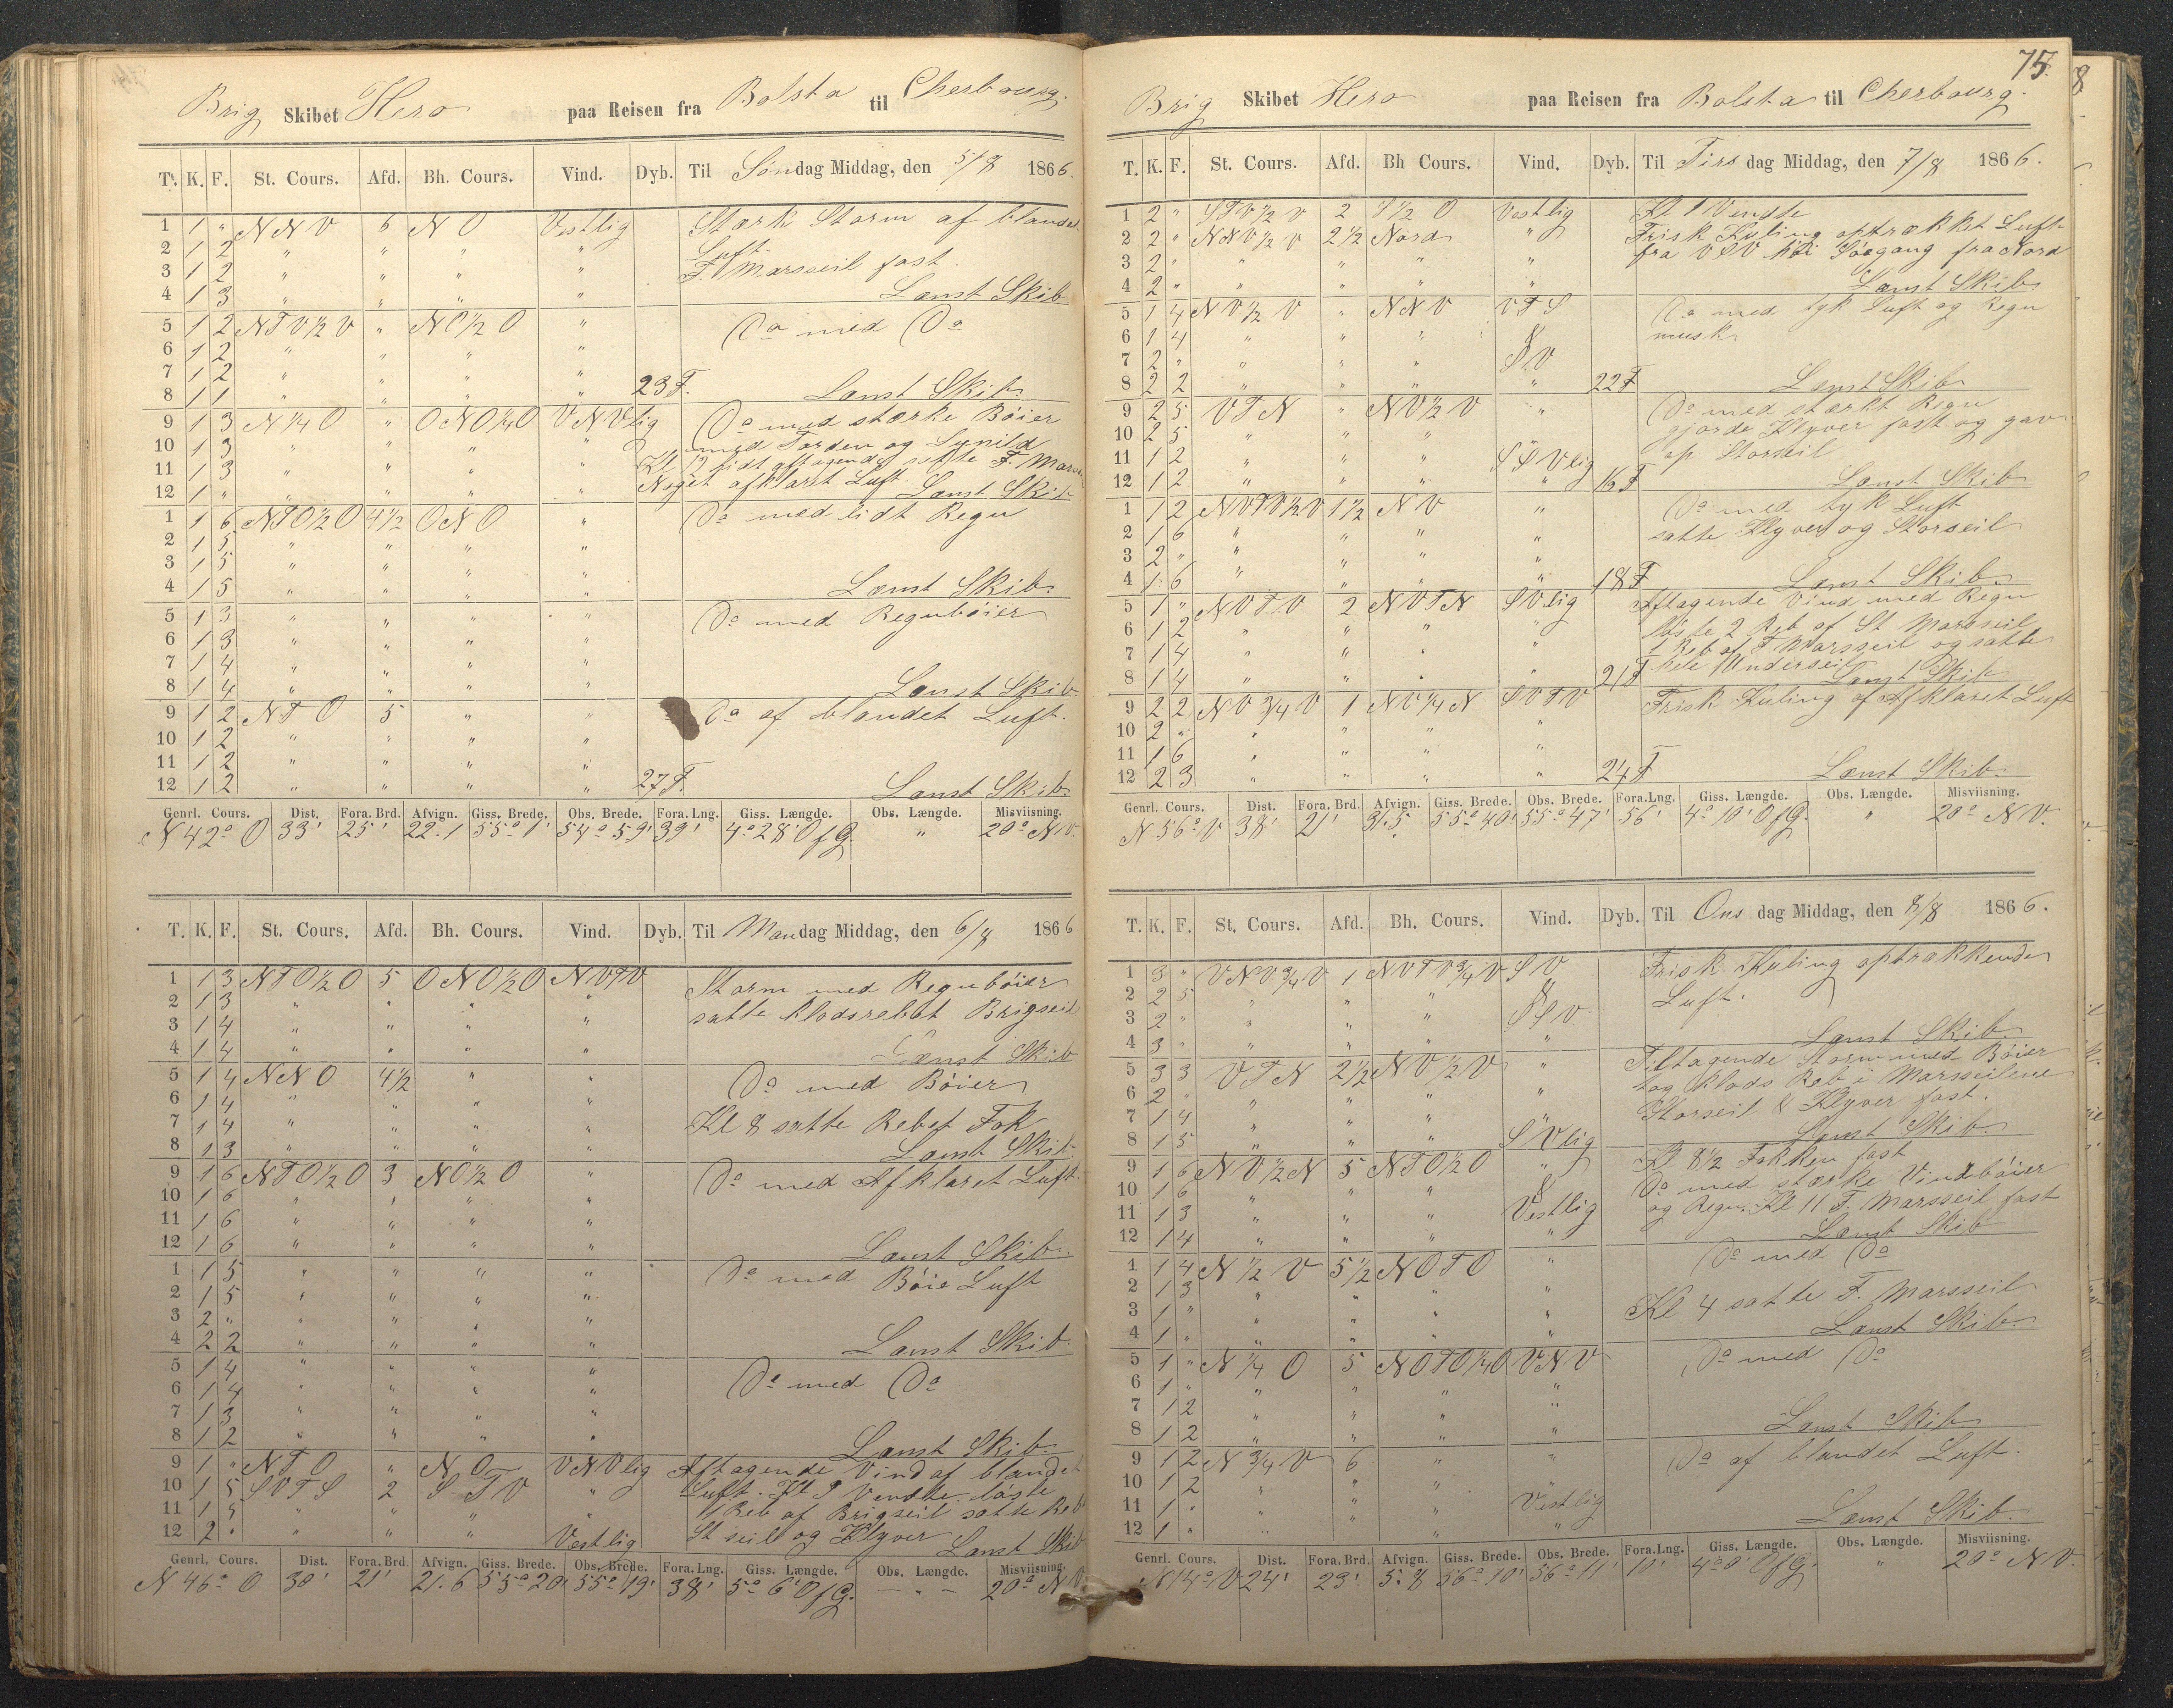 Brig Skibet Hero paa Reisen fra Bolsta til Cherbourg.
T. K. F. St. Cours. Afd. Bh. Cours. Vind. Dyb. Til Søndag Middag, den 5/8 1866.
1 1 " NNV 6 NO Vestlig Stærk Storm af blandet
2 1 2 " " " " Luft.
3 1 2 " " " " F. Marsseil fast.
4 1 3 " " " " Lænst Skib
5 1 2 NTV½V " NO½O " Do med Do
6 1 2 " " " "
7 1 2 " " " "
8 1 1 " " " " 23 F. Lænst Skib
9 1 3 N¼O " ONO¼O VNVlig Do med stærke Bøier
10 1 3 " " " " med Torden og Lynild
11 1 3 " " " " Kl 12 lidt aftagende satte F. Mars
12 1 " " " " " Noget afklaret Luft. Lænst Skib
1 1 6 NTO½O 4½ ONO " Do med lidt Regn
2 1 5 " " " "
3 1 5 " " " "
4 1 5 " " " " Lænst Skib.
5 1 3 " " " " Do med Regnbøier
6 1 3 " " " "
7 1 4 " " " "
8 1 4 " " " " Lænst Skib
9 1 2 NTO 5 " " Do af blandet Luft.
10 1 2 " " " "
11 1 2 " " " "
12 1 2 " " " " 27 F. Lænst Skib.
Genrl. Cours. Dist. Fora. Brd. Afvign. Giss. Brede. Obs. Brede. Fora. Lng. Giss. Længde. Obs. Længde. Misviisning.
N 42° O 33' 25' 22.1 55° 1' 54° 59' 39' 4° 28' O f G. " 20° NV.
T. K. F. St. Cours. Afd. Bh. Cours. Vind. Dyb. Til Mandag Middag, den 6/8 1866
1 1 3 NTO½O 5 ONO½O NVTV Storm med Regnbøier
2 1 3 " " " " satte klodsrebet Brigseil
3 1 4 " " " "
4 1 4 " " " " Lænst Skib
5 1 4 NNO 4½ " " Do med Bøier
6 1 4 " " " "
7 1 4 " " " " Kl 8 satte Rebet Fok
8 1 3 " " " " Lænst Skib.
9 1 6 NTO½O 3 NO½O " Do med Afklaret Luft.
10 1 6 " " " "
11 1 6 " " " "
12 1 6 " " " " Lænst Skib.
1 1 5 " " " " Do med Bøie Luft
2 1 5 " " " "
3 2 " " " " "
4 2 2 " " " " Lænst Skib.
5 1 4 " " " " Do med Do
6 1 4 " " " "
7 1 3 " " " "
8 1 2 " " " " Lænst Skib.
9 1 " NTO " NO VNVlig Aftagende Vind af blandet
10 1 5 SVTS 2 S.TV " Luft. Kl 9 Vendte. løste
11 1 5 " " " " 1 Reb af Brigseil satte Reb
12 2 " " " " Vestlig St seil og Klyver Lænst Skib
Genrl. Cours. Dist. Fora. Brd. Afvign. Giss. Brede. Obs. Brede. Fora. Lng. Giss. Længde. Obs. Længde. Misviisning.
N 46° O 30' 21' 21.6 55° 20' 55° 19' 38' 5° 6' O f G. — " — 20° NV
75.
Brig Skibet Hero paa Reisen fra Bolsta til Cherbourg.
T. K. F. St. Cours. Afd. Bh Cours. Vind. Dyb. Til Tirsdag Middag, den 7/8 1866.
1 2 " STV½V 2 S½O Vestlig Kl 1 Vendte
2 2 " NNV½V 2½ Nord " Frisk Kuling optrækket Luft
3 2 " " " " " fra VSV høi Søegang fra Nord
4 2 " " " " " Lænst Skib
5 1 4 NV½V " NNV VTS Do med tyk Luft og Regn
6 1 4 " " " &
7 2 " " " " SV
8 2 2 " " " " 22 F Lænst Skib
9 2 5 VTN " NV½V " Do med stærkt Regn
10 2 5 " " " gjorde Klyver fast og gav
11 1 2 " " " SSVlig op Storseil
12 1 2 " " " " 16 F Lænst Skib
1 1 2 NVTV½V 1½ NV " Do med tyk Luft
2 1 6 " " " " satte Klyver og Storseil
3 2 " " " " "
4 1 6 " " " " 18 F Lænst Skib.
5 1 " NVTV 2 NVTN SVlig Aftagende Vind med Regn
6 1 2 " " " " løste 2 Reb af St Marsseil
7 1 4 " " " " 1 Reb af F Marsseil og satte
8 1 4 " " " " 21 F hele Underseil Lænst Skib
9 2 2 NV¾V 1 NV¼N SVTV Frisk Kuling af Afklaret Luft
10 2 " " " "
11 1 6 " " " "
12 2 3 " " " " 24 F Lænst Skib.
Genrl. Cours. Dist. Fora. Brd. Afvign. Giss. Brede. Obs. Brede. Fora. Lng. Giss. Længde. Obs. Længde. Misviisning.
N 56° V 38' 21' 31.5 55° 40' 55° 47' 56' 4° 10' O f G. " 20° NV.
T. K. F. St. Cours. Afd. Bh. Cours. Vind. Dyb. Til Onsdag Middag, den 8/8 1866.
1 3 " VNV¾V 1 NVTV¾V SV Frisk Kuling optrækkende
2 2 5 " " " & Luft.
3 2 " " " " SSV.
4 3 " " " " " Lænst Skib
5 3 3 VTN 2½ NV½V " Tiltagende Storm med Bøier
6 2 " " " " " tog Klods Reb i Marsseilene
7 1 4 " " " Storseil & Klyver fast.
8 1 5 " " " SVlig Lænst Skib
9 1 6 NV½N 5 NTO½O " Kl 8½ Fokken fast
10 1 6 " " " & Do med stærke Vindbøier
11 1 3 " " " Vestlig og Regn. Kl 11 F. Marsseil fast
12 1 4 " " " " Lænst Skib
1 1 4 N½V 5½ NOTO " Do med Do
2 1 3 " " " "
3 1 " " " " " Kl 4 satte F. Marsseil
4 1 " " " " " Lænst Skib.
5 1 " N¼O 5 NOTO¼O VNV Do med Do
6 1 " " " " "
7 1 2 " " " "
8 1 2 " " " " Lænst Skib
9 1 2 N¾V 6 " " Do af blandet Luft.
10 1 2 " " " "
11 1 " " " " Vestlig
12 1 " " " " " Lænst Skib.
Genrl. Cours. Dist. Fora. Brd. Afvign. Giss. Brede. Obs. Brede. Fora. Lng. Giss. Længde. Obs. Længde. Misviisning.
N 14° V 24' 23' 5.8 56° 10' 56° 11' 10' 4° 0' O f G. " 20° NV.